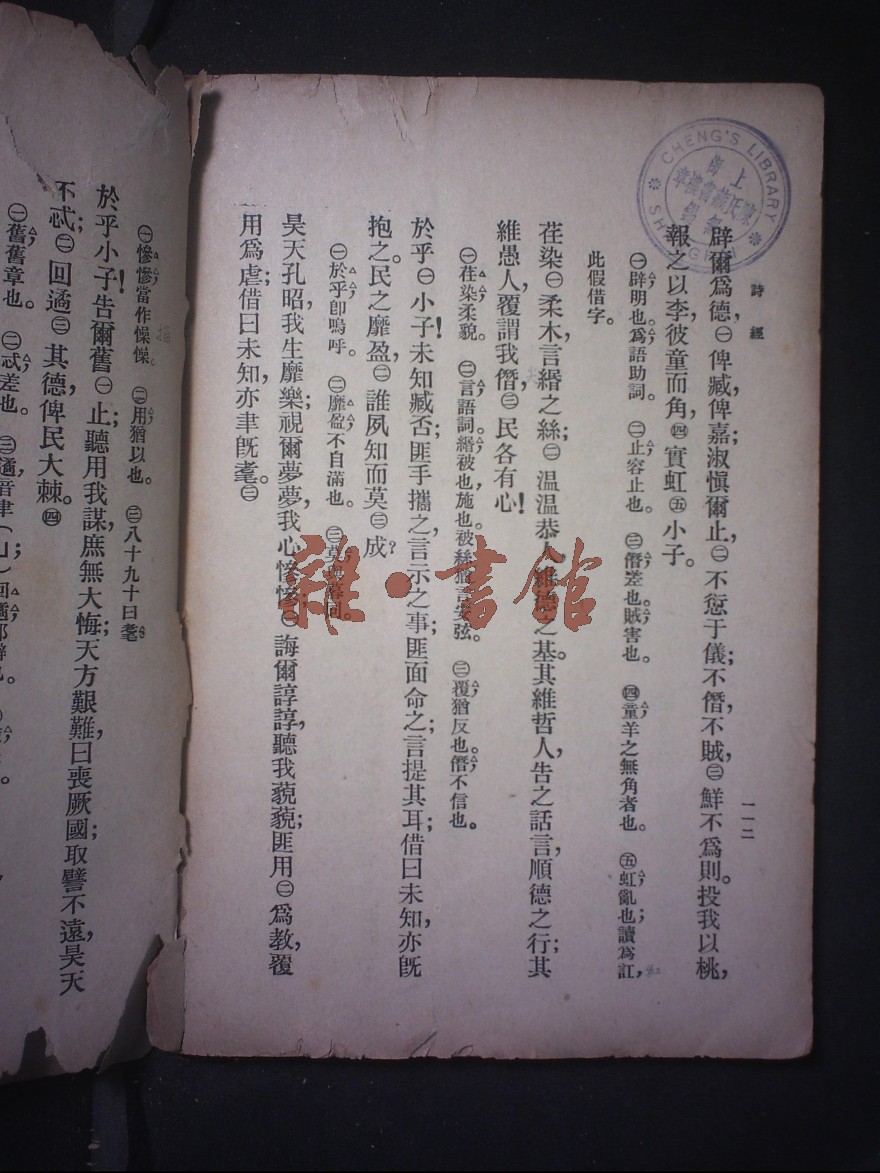 詩經
一一二
CHENG'S LIBRARY
辟爾爲德,㊀俾臧俾嘉;淑愼爾止,㊁不愆于儀;不僭,不賊,㊂鮮不爲則。投我以桃,
報之以李,彼童而角,㊃實虹㊄小子。
㊀辟,明也。爲,語助詞。 ㊁止,容止也。 ㊂僭,差也。賊,害也。 ㊃童,羊之無角者也。 ㊄虹,亂也;讀爲訌,
此假借字。
荏染㊀柔木,言緡之絲;㊁温温恭人,維德之基。其維哲人,告之話言,順德之行;其
維愚人,覆謂我僭,㊂民各有心!
㊀荏染,柔貌。 ㊁言,語詞。緡,被也,施也。被絲猶言安弦。 ㊂覆,猶反也。僭,不信也。
於乎㊀小子!未知臧否;匪手攜之,言示之事;匪面命之;言提其耳;借曰未知,亦旣
抱之。民之靡盈,㊁誰夙知而莫㊂成?
㊀於乎,卽嗚呼。 ㊁靡盈,不自滿也。
昊天孔昭,我生靡樂;視爾夢夢,我心慘慘,㊀誨爾諄諄,聽我藐藐;匪用㊁爲教,覆
用爲虐;借曰未知,亦聿旣耄。㊂
㊀慘慘,當作懆懆。 ㊁用,猶以也。 ㊂八十九十曰耄。
於乎小子!告爾舊㊀止;聽用我謀,庶無大悔;天方艱難,曰喪厥國;取譬不遠,昊天
不忒;㊁回遹㊂其德,俾民大棘。㊃
㊀舊,舊章也。 ㊁忒,差也。 ㊂遹音聿
雜·書館